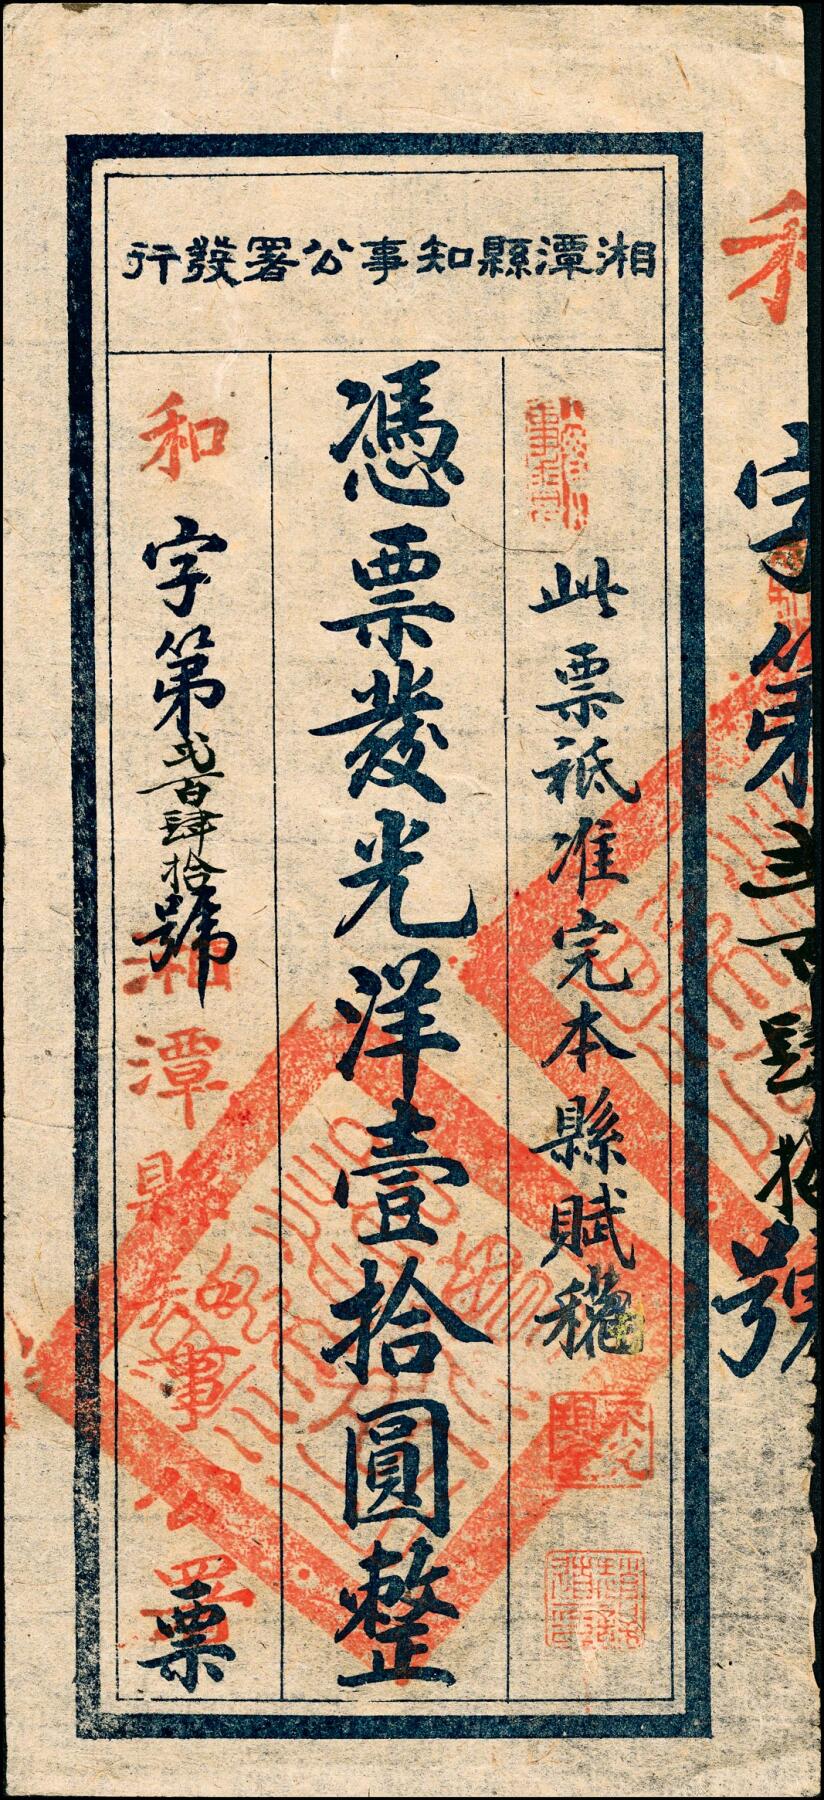 湘潭縣知事公署發行
此票祗准完本縣賦稅
憑票發光洋壹拾圓整
和字第弐百肆拾號
湘潭縣知事公署
票
和
字第弍百肆拾號